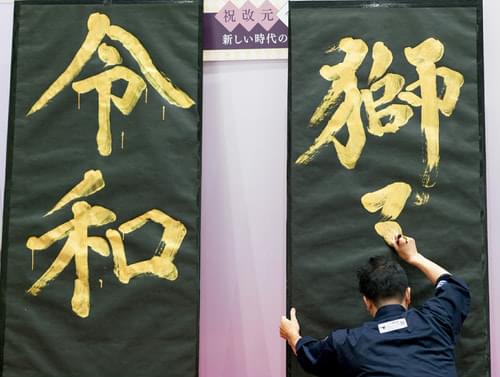 祝改元
新しい時代の
獅
令和